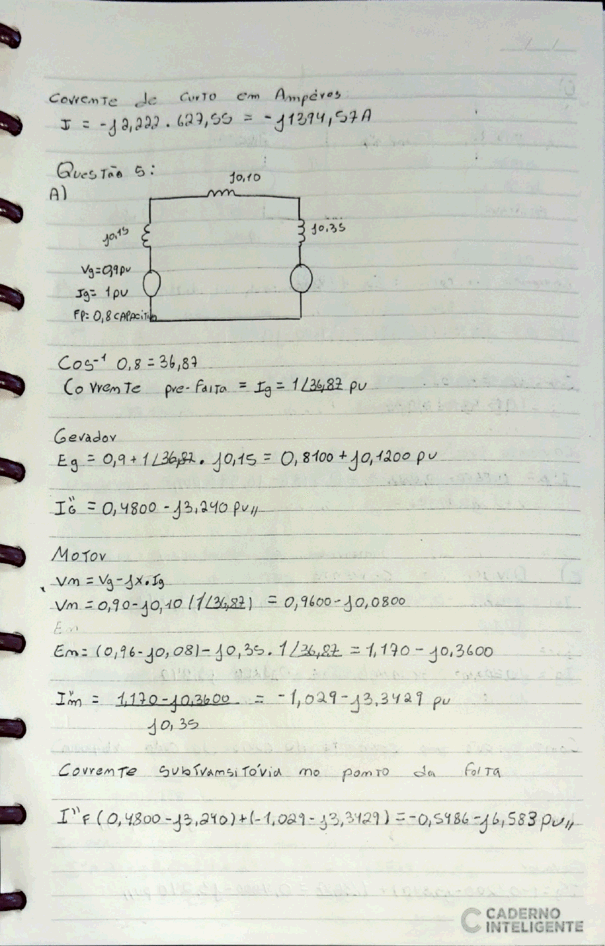 Corrente de curto em Ampéres
I = -j2,222 . 627,55 = -j1394,57A
Questão 5:
A)
j0,10
j0,15
j0,35
Vg=0,9pu
Ig= 1pu
FP= 0,8 CAPACITIV
Cos⁻¹ 0,8 = 36,87
Corrente pre-Falta = Ig = 1∠36,87 pu
Gerador
Eg = 0,9 + 1∠36,87 . j0,15 = 0,8100 + j0,1200 pu
I"G = 0,4800 - j3,240 pu,,
Motor
Vm = Vg - jx.Ig
Vm = 0,90 - j0,10 (1∠36,87) = 0,9600 - j0,0800
Em
Em = (0,96 - j0,08) - j0,35. 1∠36,87 = 1,170 - j0,3600
I"m = 1,170 - j0,3600 = -1,029 - j3,3429 pu
j0,35
Corrente subtransitória no ponto da Falta
I"F (0,4800 - j3,240) + (-1,029 - j3,3429) = -0,5486 - j6,583 pu,,
CADERNO
INTELIGENTE